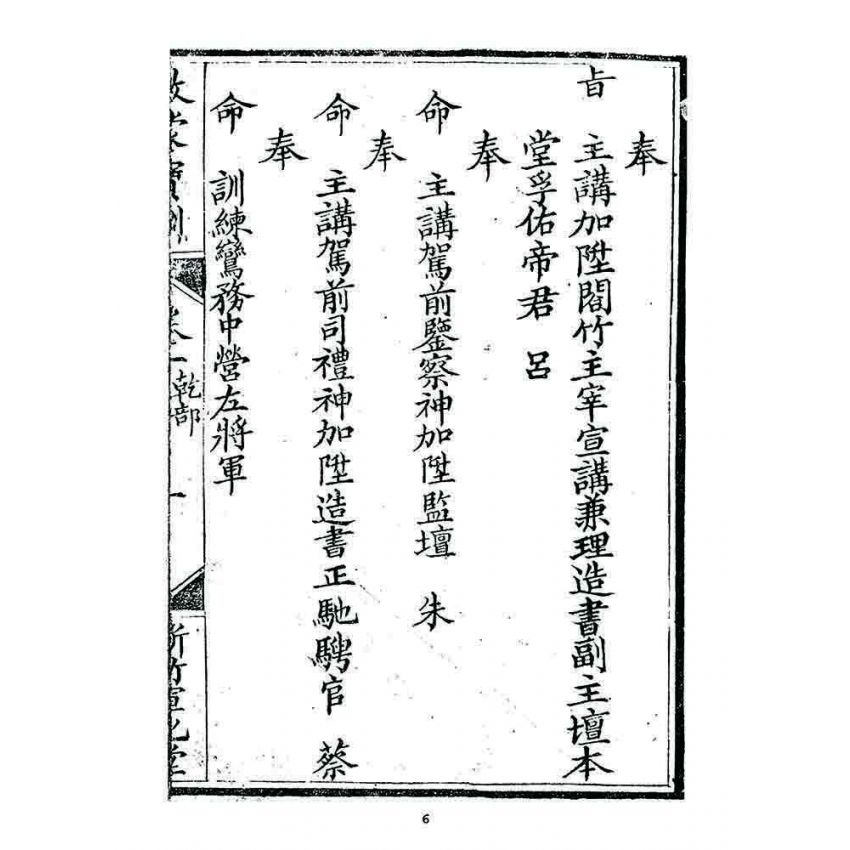 奉
旨　主講加陞閻竹主宰宣講兼理造書副主壇本
堂孚佑帝君　呂
奉
命　主講駕前鑒察神加陞監壇　朱
奉
命　主講駕前司禮神加陞造書正馳騁官　蔡
奉
命　訓練鸞務中營左將軍
卷一
乾部
一
6